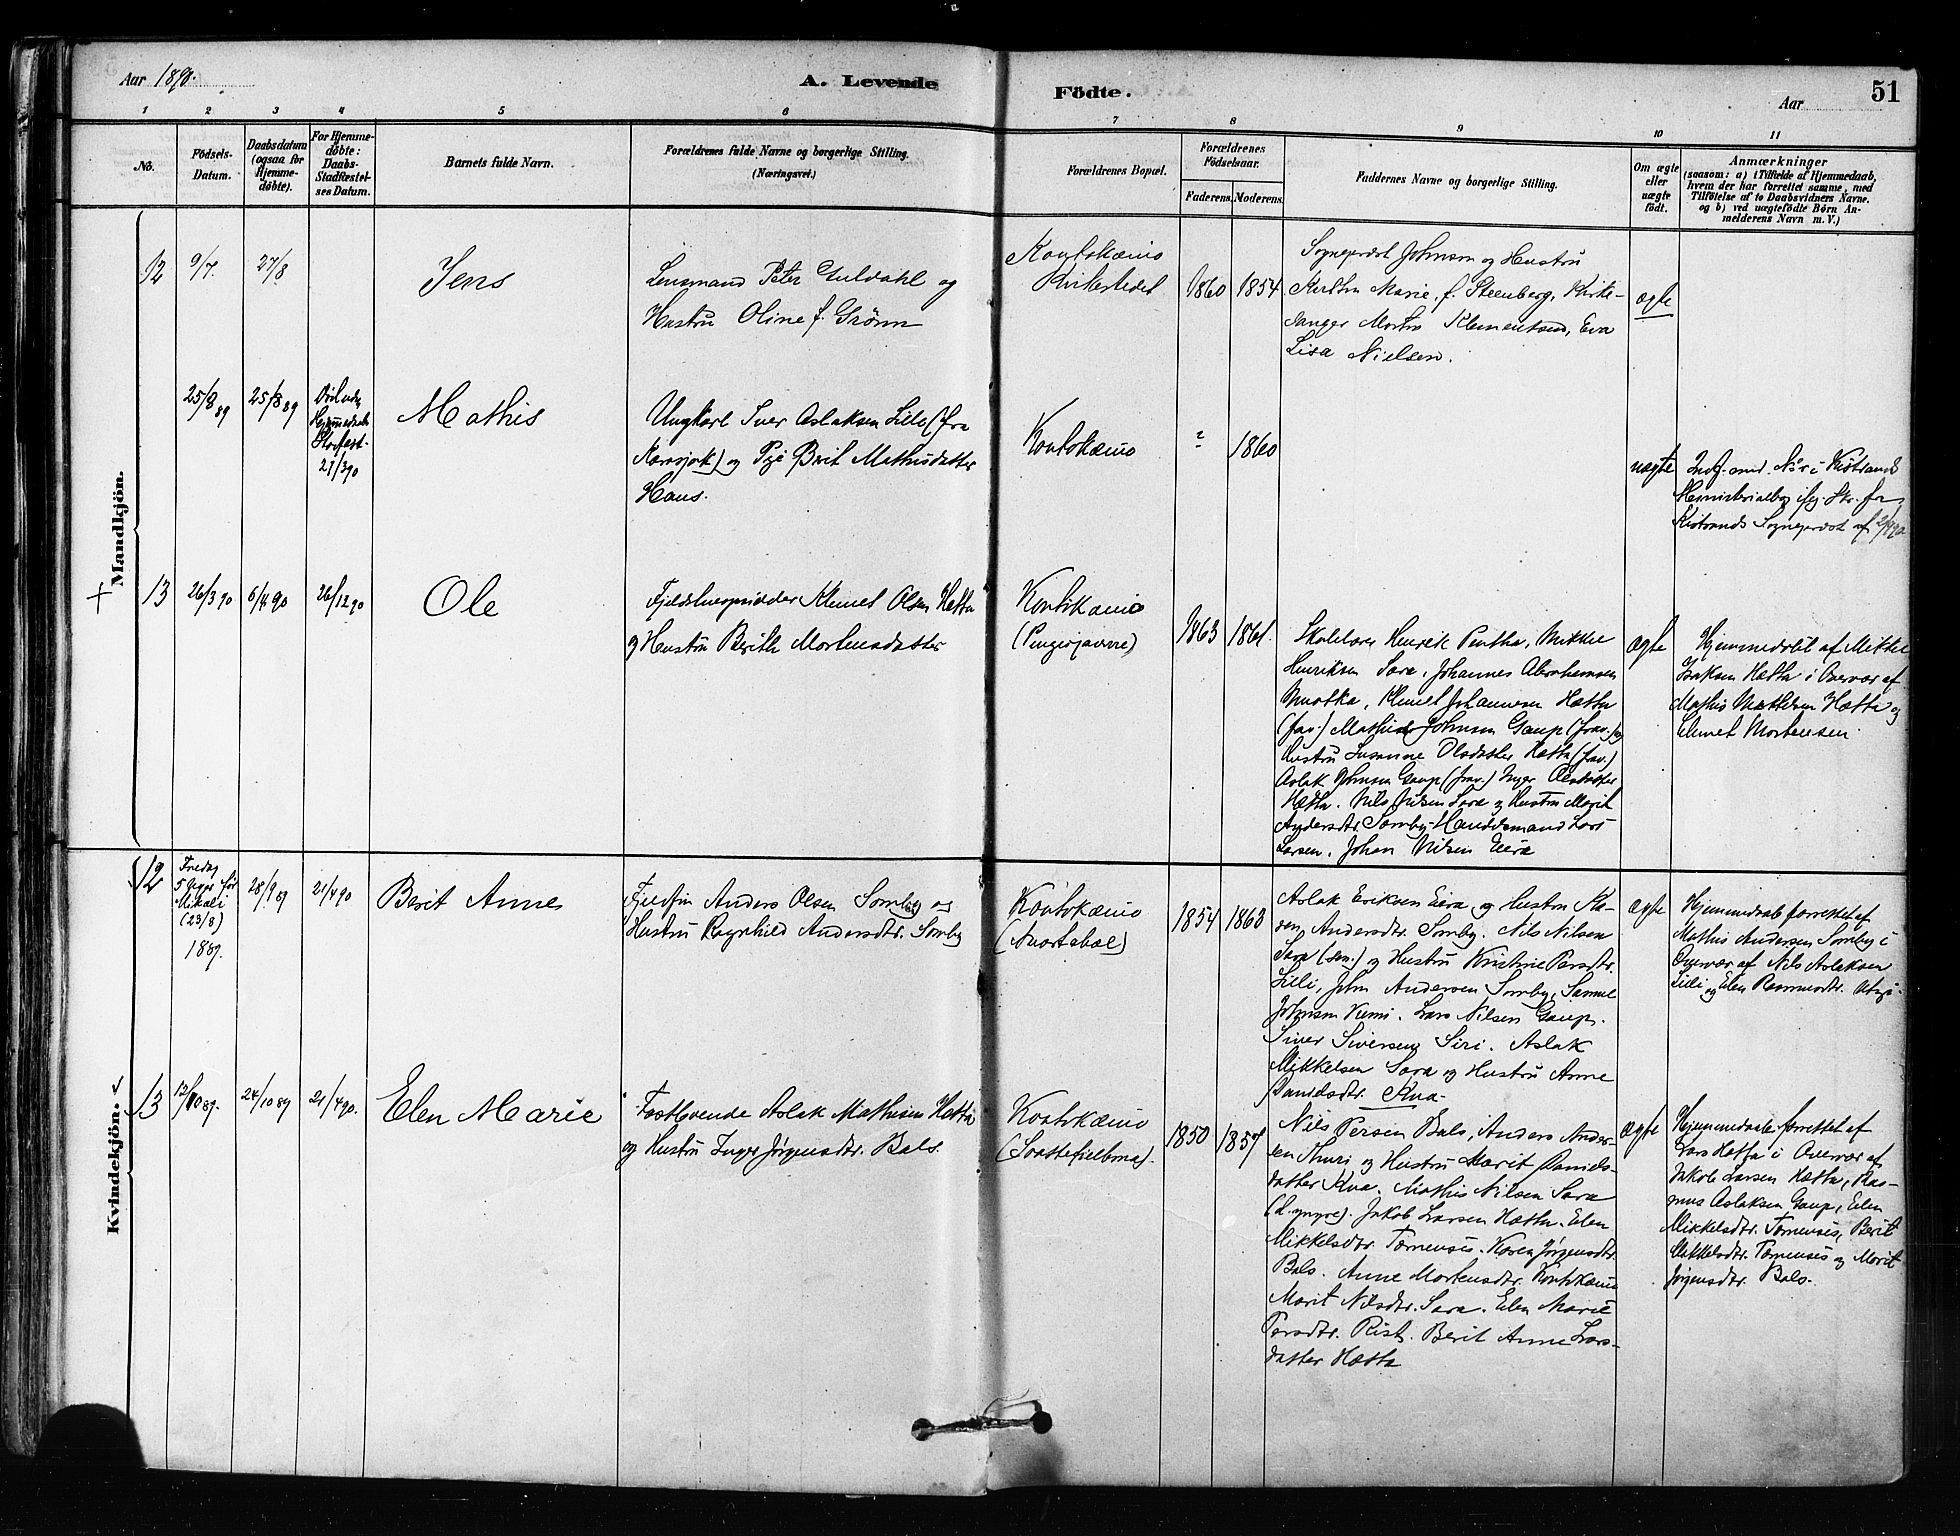 Aar 1890.
A. Levende
Födte.
Aar
51
1
2
3
4
5
6
7
8
9
10
11
No.
Födsels-
Datum.
Daabsdatum
(ogsaa for
Hjemme-
döbte).
For Hjemme-
döbte:
Daabs-
Stadfæstel-
ses Datum.
Barnets fulde Navn.
Forældrenes fulde Navne og borgerlige Stilling.
(Næringsvei.)
Forældrenes Bopæl.
Forældrenes
Födselsaar.
Faderens.
Moderens.
Faddernes Navne og borgerlige Stilling.
Om ægte
eller
uægte
født.
Anmærkninger
(saasom: a) i Tilfælde af Hjemmedaab,
hvem der har forrettet samme, med
Tilföielse af to Daabsvidners Navne.
og b) ved uægtefödte Börn An-
melderens Navn m. V.)
Mandkjön.
12
9/7.
27/8
Jens
Lensmand Peter Guldahl og
Hustru Oline f. Grönn
Koutokæino
Kirkestedet
1860
1854
Sognepræst Johnsen og Hustru
Marie, f. Steenberg, Kirke-
sanger Klementsen, Eva
Lisa Nielsen.
ægte
25/8 89
25/8 89
Stadfæst.
27/3 90
Mathis
Ungkarl Iver Aslaksen Lille (fra
Karasjok) og Pige Berit Mathisdatter
Hans.
Koutokæino
?
1860
uægte
No. i Kistrands
Ministerialbog
Kistrands Sognepræst af
13
26/3 90
6/4 90
26/12 90
Ole
Klemet Olsen Hætta
og Hustru Berith Mortensdatter
Koutokæino
1863
1861.
Skolelærer Henrik Pentha, Mikkel
Henriksen Sara, Johannes Abrahamsen
Klemet Johannesen Hætta
(frav.) Johnsen Gaup (frav.) og
Hustru Susanne Olsdatter Hætta (frav.)
Aslak Johnsen Gaup (frav.) Inger Olsdatter
Hætta. Nils Nilsen Sara og Hustru Marit
Andersdtr. Somby. Lars
Larsen. Johan Nilsen Eira
Ægte
Hjemmedøbt af Mikkel
Isaksen Hætta i Overvær af
Mathis Mathisen Hætta og
Klemet Mortensen
Kvindekjön.
12
Fredag
5 Uger før
Mikali
(23/8)
1889.
28/9 89
21/4 90
Berit Anne
Fjeldfin Anders Olsen Somby og
Hustru Ragnhild Andersdtr. Somby
Koutokæino
1854
1863
Aslak Eriksen Eira, og Hustru Ka-
ren Andersdtr. Somby. Nils Nilsen
Sara (sen.) og Hustru Kristine Persdtr.
Lilli, John Andersen Somby, Samuel
Johnsen Kemi. Lars Nilsen Gaup.
Siver Siversen Siri. Aslak
Mikkelsen Sara og Hustru Anne
Danielsdtr. Kva.
Ægte
Hjemmedaab forrettet af
Mathis Andersen Somby i
Overvær af Nils Aslaksen
Lilli og Elen Rasmusdtr.
13
12/10 89.
24/10 89
21/4 90.
Elen Marie
Fastboende Aslak Mathisen Hætta
og Hustru Inger Jørgensdtr. Bals.
Koutokæino
1850
1857
Nils Persen Bals, Anders Ander-
sen Thuri, og Hustru Marit Daniels-
datter Kva. Mathis Nilsen Sara
(d. yngre). Jakob Larsen Hætta. Elen
Mikkelsdtr. Tornensis. Karen Jørgensdtr.
Bals. Anne Mortensdtr. Koutokæino
Marit Nilsdtr. Sara. Elen Marie
Persdtr. Rist. Berit Anne Lars-
datter Hætta
Ægte
Hjemmedaab forrettet af
Lars Hætta i Overvær af
Jakob Larsen Hætta, Ras-
mus Aslaksen Gaup, Elen
Mikkelsdtr. Tornensis, Berit
Mikkelsdtr. Tornensis og Marit
Jørgensdtr. Bals.